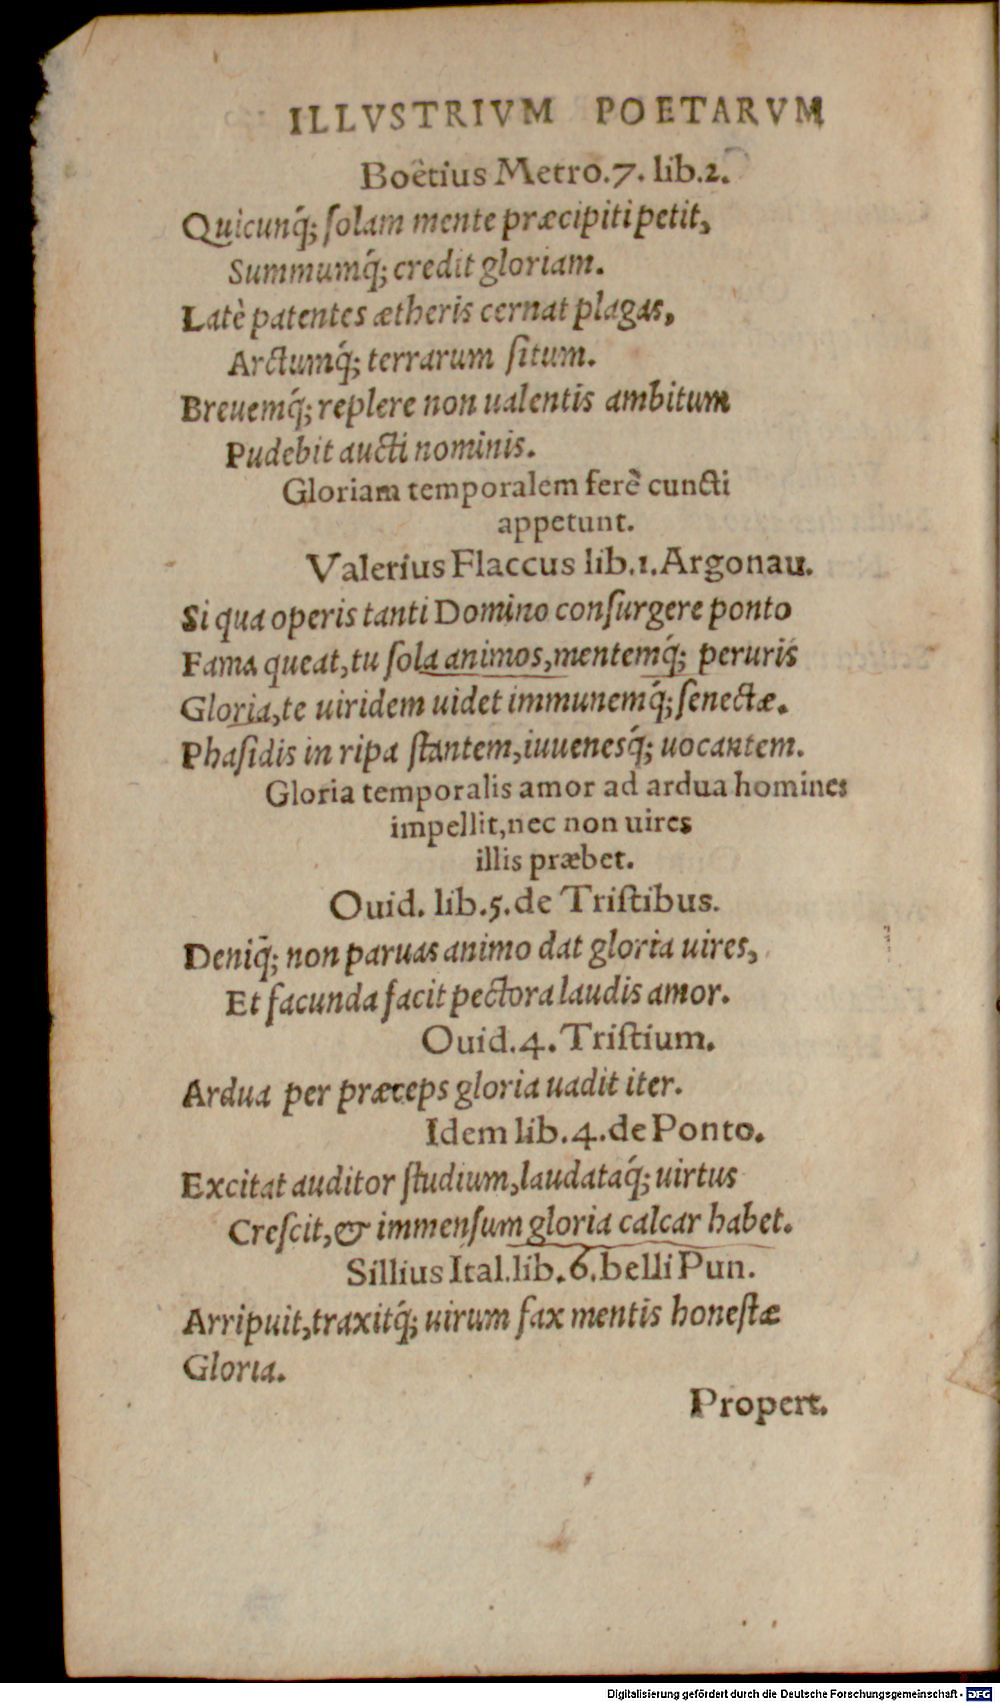 ILLVSTRIVM POETARVM
Boëtius Metro.7. lib.2.
Quicunq́; ſolam mente præcipiti petit,
Summumq́; credit gloriam.
Latè patentes ætheris cernat plagas,
Arctumq́; terrarum ſitum.
Breuemq́; replere non ualentis ambitum
Pudebit aucti nominis.
Gloriam temporalem ferè cuncti
appetunt.
Valerius Flaccus lib.1. Argonau.
Si qua operis tanti Domino conſurgere ponto
Fama queat, tu ſola animos, mentemq́; peruris
Gloria, te uiridem uidet immunemq́; ſenectæ.
Phaſidis in ripa ſtantem, iuuenesq́; uocantem.
Gloria temporalis amor ad ardua homines
impellit, nec non uires
illis præbet.
Ouid. lib.5. de Triſtibus.
Deniq̃; non paruas animo dat gloria uires,
Et facunda facit pectora laudis amor.
Ouid.4. Triſtium.
Ardua per præceps gloria uadit iter.
Idem lib.4. de Ponto.
Excitat auditor ſtudium, laudataq́; uirtus
Creſcit, & immenſum gloria calcar habet.
Sillius Ital. lib.6. belli Pun.
Arripuit, traxitq́; uirum fax mentis honeſtæ
Gloria.
Propert.
Digitalisierung gefördert durch die Deutsche Forschungsgemeinschaft - DFG